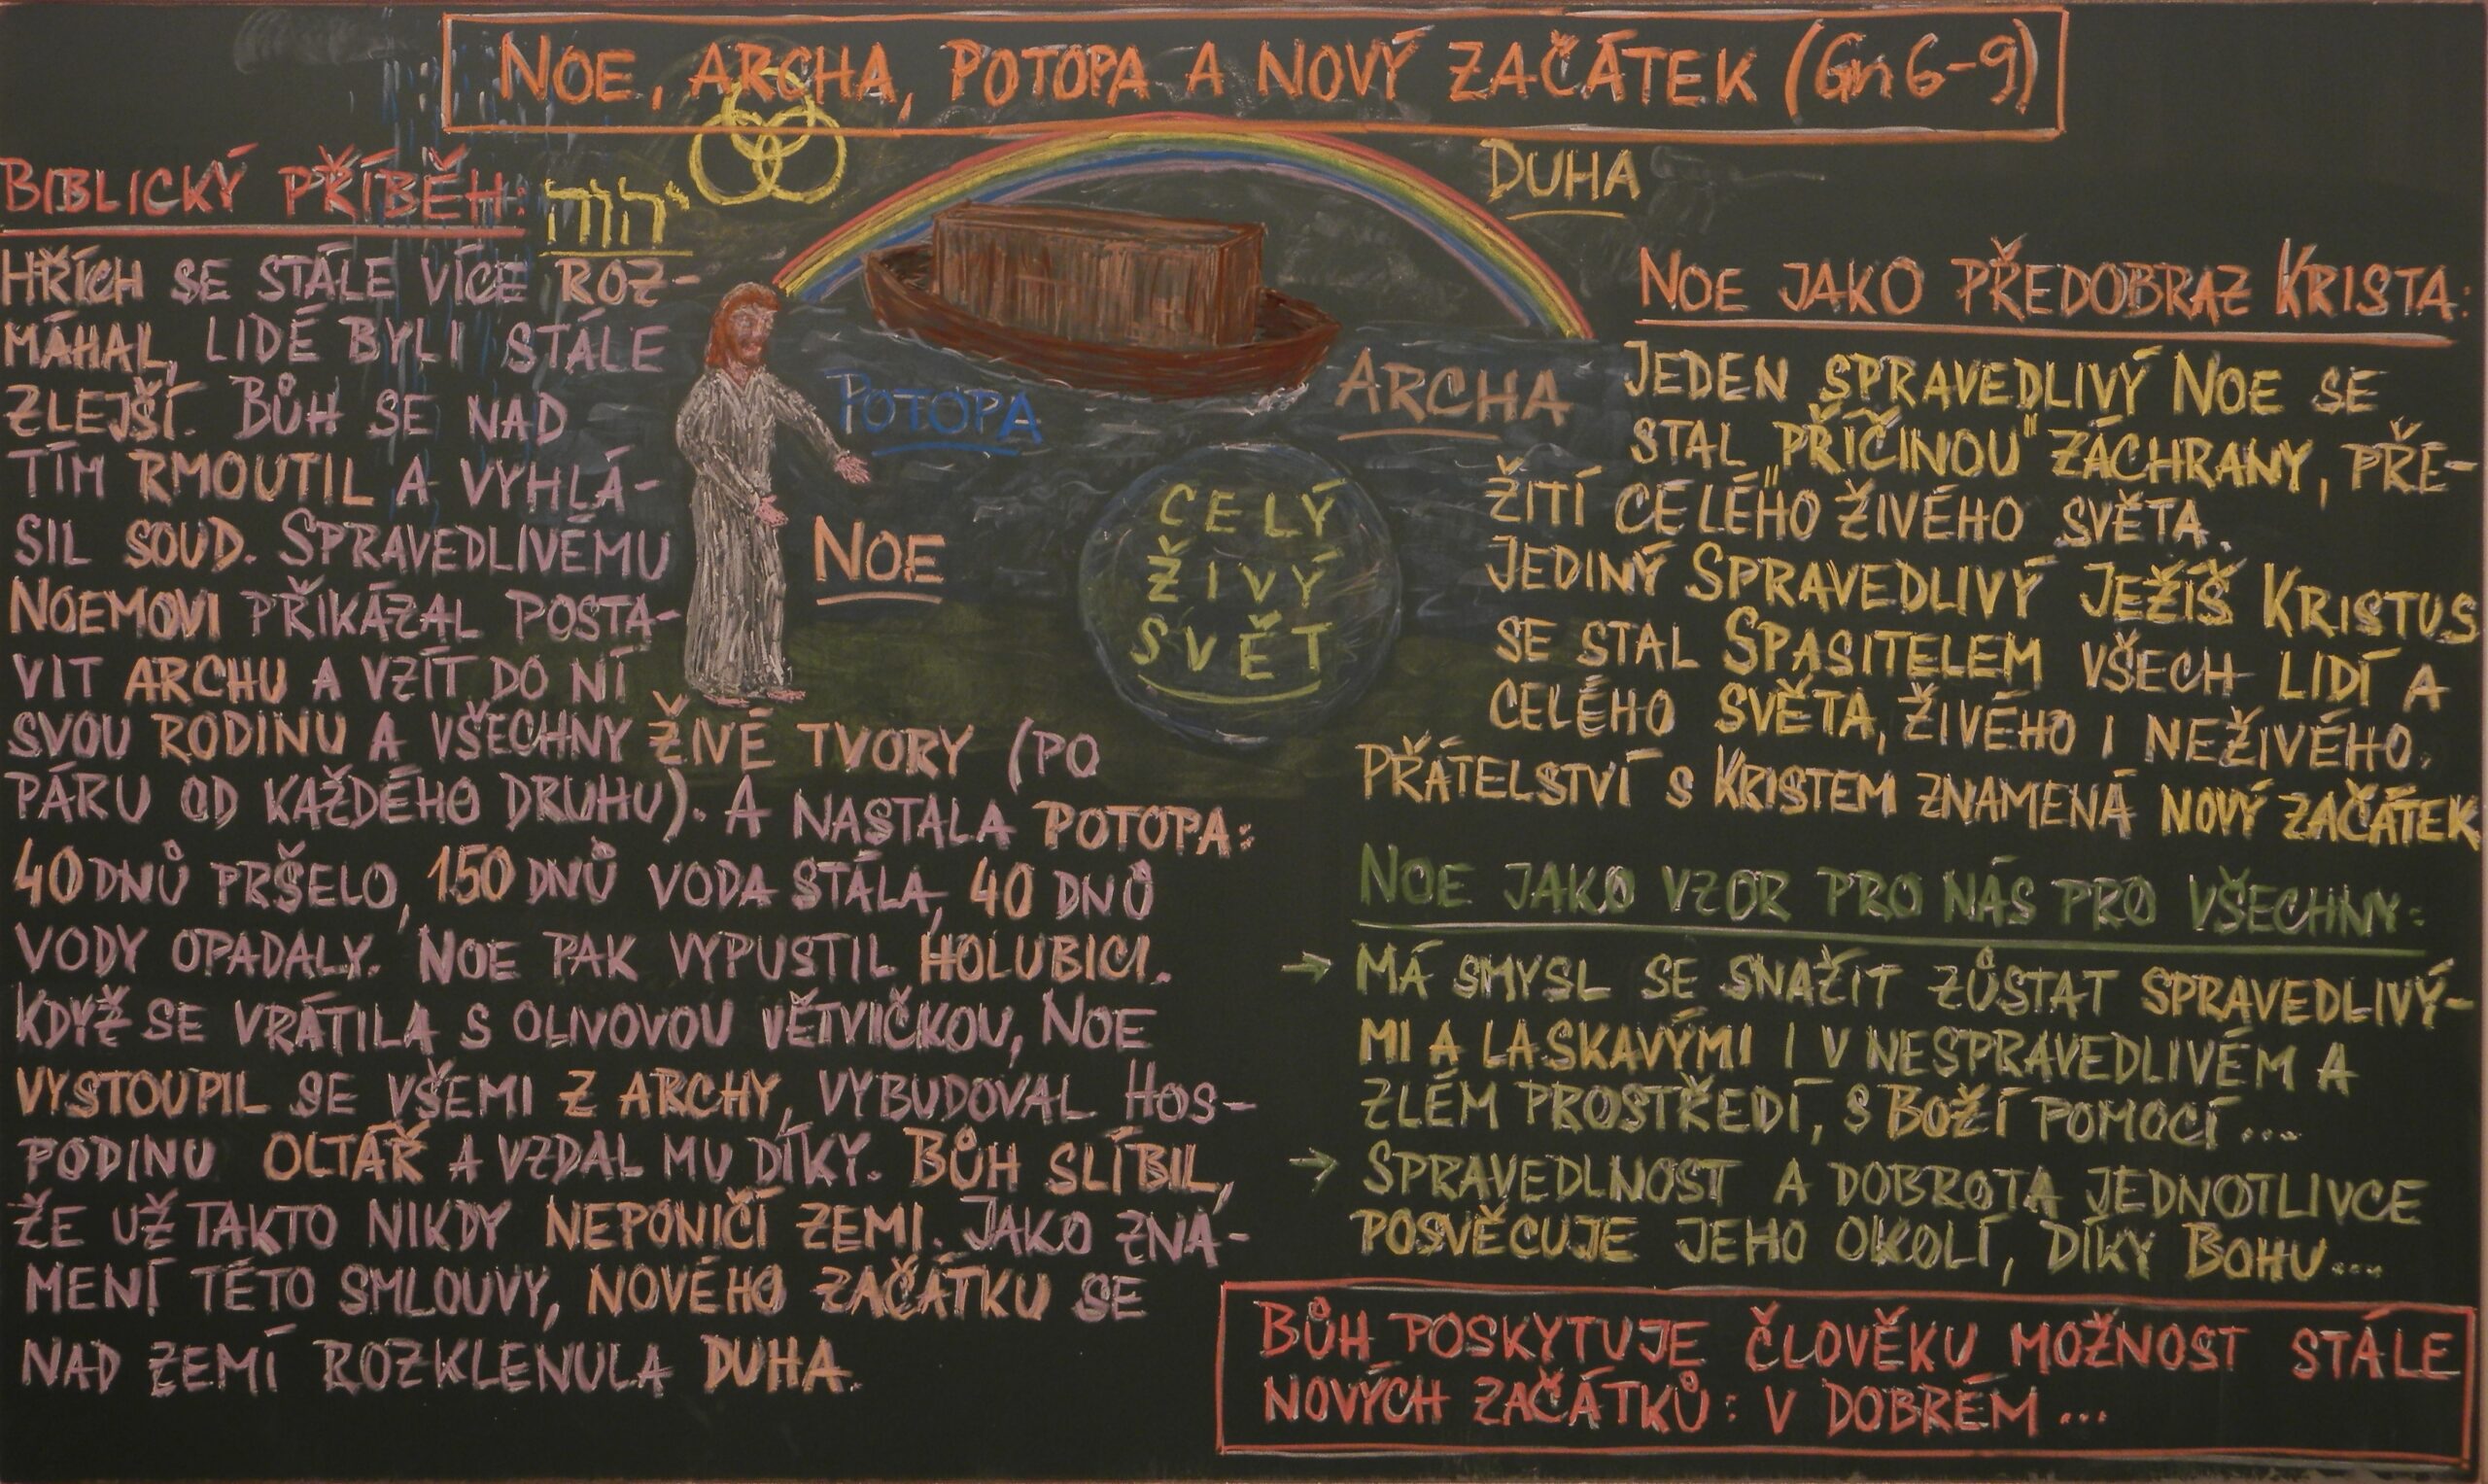 NOE, ARCHA, POTOPA A NOVÝ ZAČÁTEK (Gn 6-9)
BIBLICKÝ PŘÍBĚH:
יהוה
HŘÍCH SE STÁLE VÍCE ROZ-
MÁHAL, LIDÉ BYLI STÁLE
ZLEJŠÍ. BŮH SE NAD
TÍM RMOUTIL A VYHLÁ-
SIL SOUD. SPRAVEDLIVÉMU
NOEMOVI PŘIKÁZAL POSTA-
VIT ARCHU A VZÍT DO NÍ
SVOU RODINU A VŠECHNY ŽIVÉ TVORY (PO
PÁRU OD KAŽDÉHO DRUHU). A NASTALA POTOPA:
40 DNŮ PRŠELO, 150 DNŮ VODA STÁLA, 40 DNŮ
VODY OPADALY. NOE PAK VYPUSTIL HOLUBICI.
KDYŽ SE VRÁTILA S OLIVOVOU VĚTVIČKOU, NOE
VYSTOUPIL SE VŠEMI Z ARCHY, VYBUDOVAL HOS-
PODINU OLTÁŘ A VZDAL MU DÍKY. BŮH SLÍBIL,
ŽE UŽ TAKTO NIKDY NEPONIČÍ ZEMI. JAKO ZNA-
MENÍ TÉTO SMLOUVY, NOVÉHO ZAČÁTKU SE
NAD ZEMÍ ROZKLENULA DUHA.
DUHA
POTOPA
ARCHA
NOE
CELÝ
ŽIVÝ
SVĚT
NOE JAKO PŘEDOBRAZ KRISTA:
JEDEN SPRAVEDLIVÝ NOE SE
STAL „PŘÍČINOU" ZÁCHRANY, PŘE-
ŽITÍ CELÉHO ŽIVÉHO SVĚTA.
JEDINÝ SPRAVEDLIVÝ JEŽÍŠ KRISTUS
SE STAL SPASITELEM VŠECH LIDÍ A
CELÉHO SVĚTA, ŽIVÉHO I NEŽIVÉHO.
PŘÁTELSTVÍ S KRISTEM ZNAMENÁ NOVÝ ZAČÁTEK
NOE JAKO VZOR PRO NÁS PRO VŠECHNY:
→ MÁ SMYSL SE SNAŽIT ZŮSTAT SPRAVEDLIVÝ-
MI A LASKAVÝMI I V NESPRAVEDLIVÉM A
ZLÉM PROSTŘEDÍ, S BOŽÍ POMOCÍ...
→ SPRAVEDLNOST A DOBROTA JEDNOTLIVCE
POSVĚCUJE JEHO OKOLÍ, DÍKY BOHU...
BŮH POSKYTUJE ČLOVĚKU MOŽNOST STÁLE
NOVÝCH ZAČÁTKŮ: V DOBRÉM...